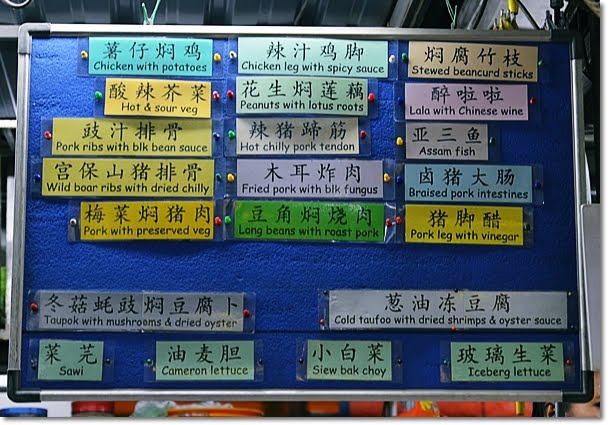 薯仔焖鸡
Chicken with potatoes
辣汁鸡脚
Chicken leg with spicy sauce
焖腐竹枝
Stewed beancurd sticks
酸辣芥菜
Hot & sour veg
花生焖莲藕
Peanuts with lotus roots
醉啦啦
Lala with Chinese wine
豉汁排骨
Pork ribs with blk bean sauce
辣猪蹄筋
Hot chilly pork tendon
亚三鱼
Assam fish
宫保山猪排骨
Wild boar ribs with dried chilly
木耳炸肉
Fried pork with blk fungus
卤猪大肠
Braised pork intestines
梅菜焖猪肉
Pork with preserved veg
豆角焖烧肉
Long beans with roast pork
猪脚醋
Pork leg with vinegar
冬菇蚝豉焖豆腐卜
Taupok with mushrooms & dried oyster
葱油冻豆腐
Cold taufoo with dried shrimps & oyster sauce
菜芫
Sawi
油麦胆
Cameron lettuce
小白菜
Siew bak choy
玻璃生菜
Iceberg lettuce